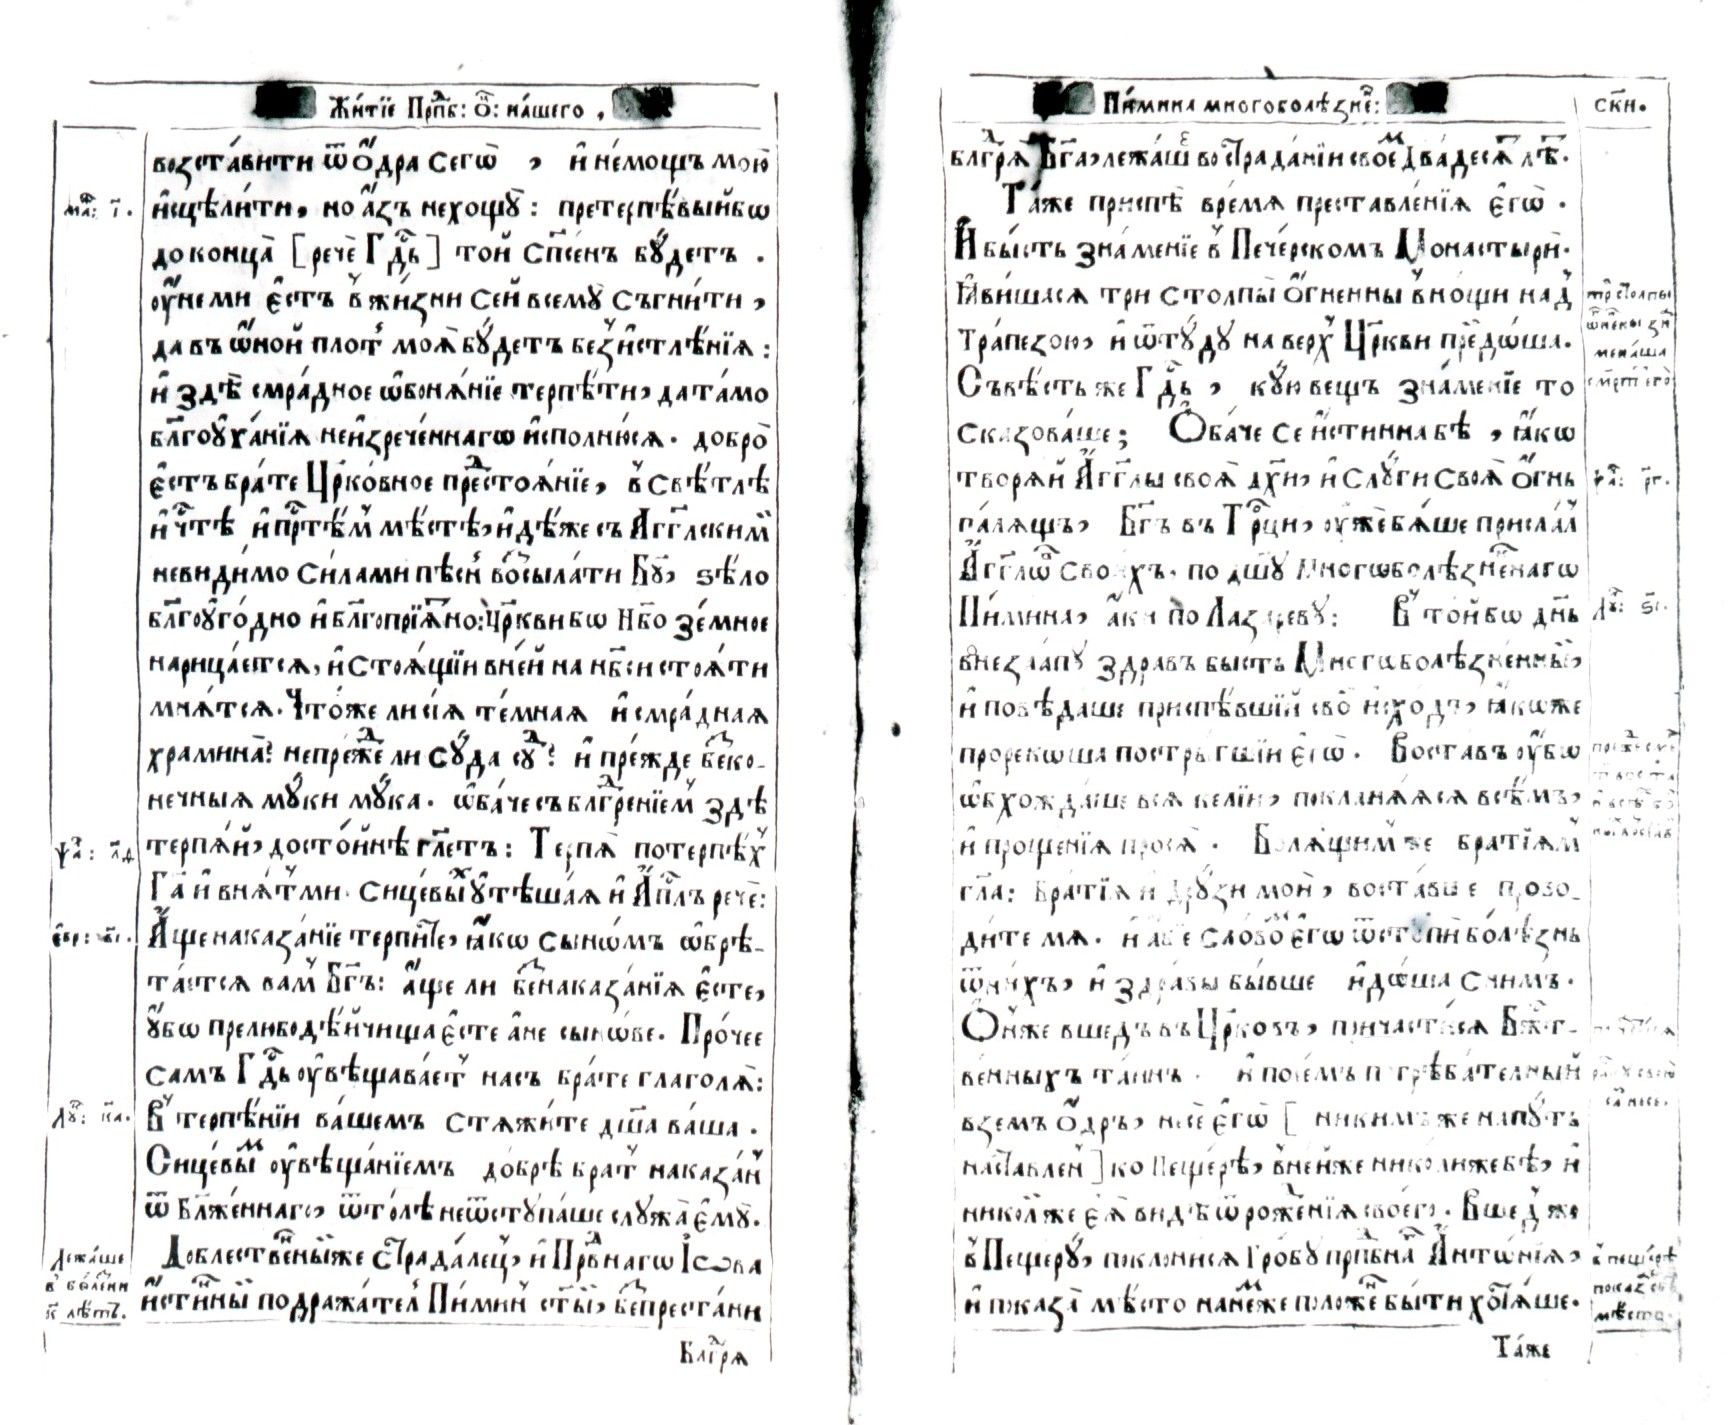 Жи́тїе Прпⷣб: Ѻ҃: на́шего ,
возста́вити ѿ ѻ҆дра̀ сегѡ̀ , и҆ не́мощъ мою̀
Маⷴ: і҃. и҆сцѣли́ти, но а҆́зъ не хощꙋ̀: претерпѣ́вый бѡ
до конца̀ [речѐ Гдⷭ҇ь] то́й сп҃се́нъ бꙋ́детъ .
ᲂу҆́не ми є҆́стъ в̾ жи́зни се́й всемꙋ̀ съгни́ти ,
да въ ѡ҆́ной пло́т̾ моѧ̀ бꙋ́детъ без̾ и҆стлѣ́нїѧ :
и҆ здѣ̀ смра́дное ѡ҆бонѧ́нїе терпѣ́ти, да та́мо
бл҃гоꙋха́нїѧ неи҆зрече́ннагѡ и҆спо́лнюсѧ . добро̀
є҆́стъ бра́те Цр҃ко́вное преⷣстоѧ́нїе, в̾ свѣ́тлѣ
и҆ чⷭ҇тѣ и҆ прⷭ҇тѣ́м̾ мѣ́стѣ, и҆дѣ́же съ А҆́гг҃лскими̾
неви́димо си́лами пѣ́сн̾ возсыла́ти Бг҃ꙋ, ѕѣ́ло
бл҃гоꙋго́дно и҆ бл҃гопрїѧ́тно: Цр҃кви бѡ Нб҃о зе́мное
нарица́етсѧ, и҆ стоѧ́щїи в̾ не́й на нб҃си стоѧ́ти
мнѧ́тсѧ. Что́ же ли сїѧ̀ те́мнаѧ и҆ смра́днаѧ
хра́мина? не преⷤде ли сꙋда̀ сꙋⷣ? и҆ пре́жде беⷥко-
нечныѧ мꙋ́ки мꙋ́ка . ѡ҆ба́че съ благⷣаре́нїем̾ здѣ̀
ѱаⷧ: л҃д терпѧ́й, досто́йнѣ гл҃етъ: Терпѧ̀ потерпѣ́х̾
Гⷭ҇а и҆ внѧ́т̾ ми . сицевы́ⷨ ᲂу҆тѣша́ѧ и҆ А҆пⷭ҇лъ речѐ:
є҆вр: в҃і. А҆́ще наказа́нїе терпитѐ, ꙗ҆́кѡ сынѡ́мъ ѡ҆брѣ-
та́етсѧ ва́м̾ Бг҃ъ: а҆́ще ли беⷥ наказа́нїѧ є҆́сте,
ᲂу҆́бѡ прелюбодѣ́йчища є҆́сте а҆ не сынѡ́ве. Про́чее
са́мъ Гдⷭ҇ь ᲂу҆вѣщава́ет̾ на́съ бра́те глаго́лѧ:
Лꙋⷦ: к҃а. В̾ терпѣ́нїи ва́шемъ стѧжи́те дш҃а ва́ша .
Сицевы́ⷨ ᲂу҆вѣща́нїемъ до́брѣ бра́т̾ наказа́н̾
ѿ Бл҃же́ннагѡ, ѿто́лѣ неѿстꙋпа́ше слꙋжа̀ є҆мꙋ̀.
Лежа́ше в̾ болѣ́зни к҃ лѣ́тъ. До́блественныйже Страда́лец̾, и҆ Праⷡ҇наго І҆́ѡва
и҆́стинный подража́тел̾ Пи́мин̾ ст҃ы́й, беⷥпреста́ни
Благⷣарѧ
Пи́мина многоболѣ́зненⷢ: сн҃и.
благⷣарѧ̀ Бг҃а, лежа́ше во страда́нїи свое́ⷨ два́десѧт̾ лѣ́т̾.
Та́же приспѣ̀ вре́мѧ преставле́нїѧ є҆гѡ̀ .
И҆ бы́сть зна́менїе в̾ Пече́рскомъ Монастырѝ.
Ꙗ҆ви́шасѧ три столпы̀ ѻ҆́гненны в̾ нощѝ над̾
тра́пезою, и҆ ѿтꙋ́дꙋ на ве́рх̾ Цр҃кви преⷣидо́ша.
Съвѣ́сть же Гдⷭ҇ь , кꙋ́ю ве́щъ зна́менїе то̀
сказова́ше; Ѻ҆ба́че се и҆́стинна бѣ̀ , ꙗ҆́кѡ
творѧ́й А҆́гг҃лы своѧ̀ дх҃и, и҆ слꙋгѝ своѧ̀ ѻ҆́гнь ѱаⷧ: р҃г.
палѧ́щъ, Бг҃ъ въ Трⷪ҇ци, ᲂу҆жѐ бѧ́ше присла́л̾
А҆́гг҃лѡв̾ свои́хъ, по дш҃ꙋ Многѡболѣ́зненнагѡ
Пи́мина, а҆́ки по Ла́заревꙋ: В̾ то́й бѡ дн҃ь Лꙋⷦ: ѕ҃і.
внеза́апꙋ здра́въ бы́сть Многѡболѣ́зненный,
и҆ повѣ́даше приспѣ́вшїй сво́й и҆схо́дъ, ꙗ҆́коже
прореко́ша постри́гшїи є҆го̀. Воста́въ ᲂу҆́бѡ
ѡ҆бхожда́ше всѧ̀ ке́лїи, покланѧ́ѧсѧ всѣ́мъ,
и҆ проще́нїѧ просѧ̀ . Болѧ́щим̾ же бра́тїѧм̾
гл҃ѧ: Бра́тїѧ и҆ дрꙋ́зи мои̑, воста́вше прово-
ди́те мѧ̀. и҆ а҆́бїе сло́во є҆гѡ̀ ѿстꙋпѝ болѣ́знь
ѿ ни́хъ, и҆ здра́вы бы́вше и҆до́ша с ни́мъ.
Ѻ҆́нже вше́дъ въ Цр҃ковъ, причасти́сѧ Бжⷭ҇т-
ве́нныхъ та́инъ . и҆ пото́мъ погреба́тельный
взе́мъ ѻ҆́дръ, несѐ є҆гѡ̀ [ ники́мъже на пꙋ́ть
наставле́н̾ ] ко пеще́рѣ, в̾ не́йже николи́же бѣ̀, и҆
николи́же є҆ѧ̀ ви́дѣ ѿ рожде́нїѧ своегѡ̀. Вше́д̾ же
в̾ Пеще́рꙋ, поклони́сѧ гро́бꙋ прпⷣбна́гѡ А҆нтѡ́нїѧ, в̾ пеще́рѣ
и҆ показа̀ мѣ́сто на не́мже положе́н̾ бы́ти хотѧ́ше. мѣ́сто.
Та́же